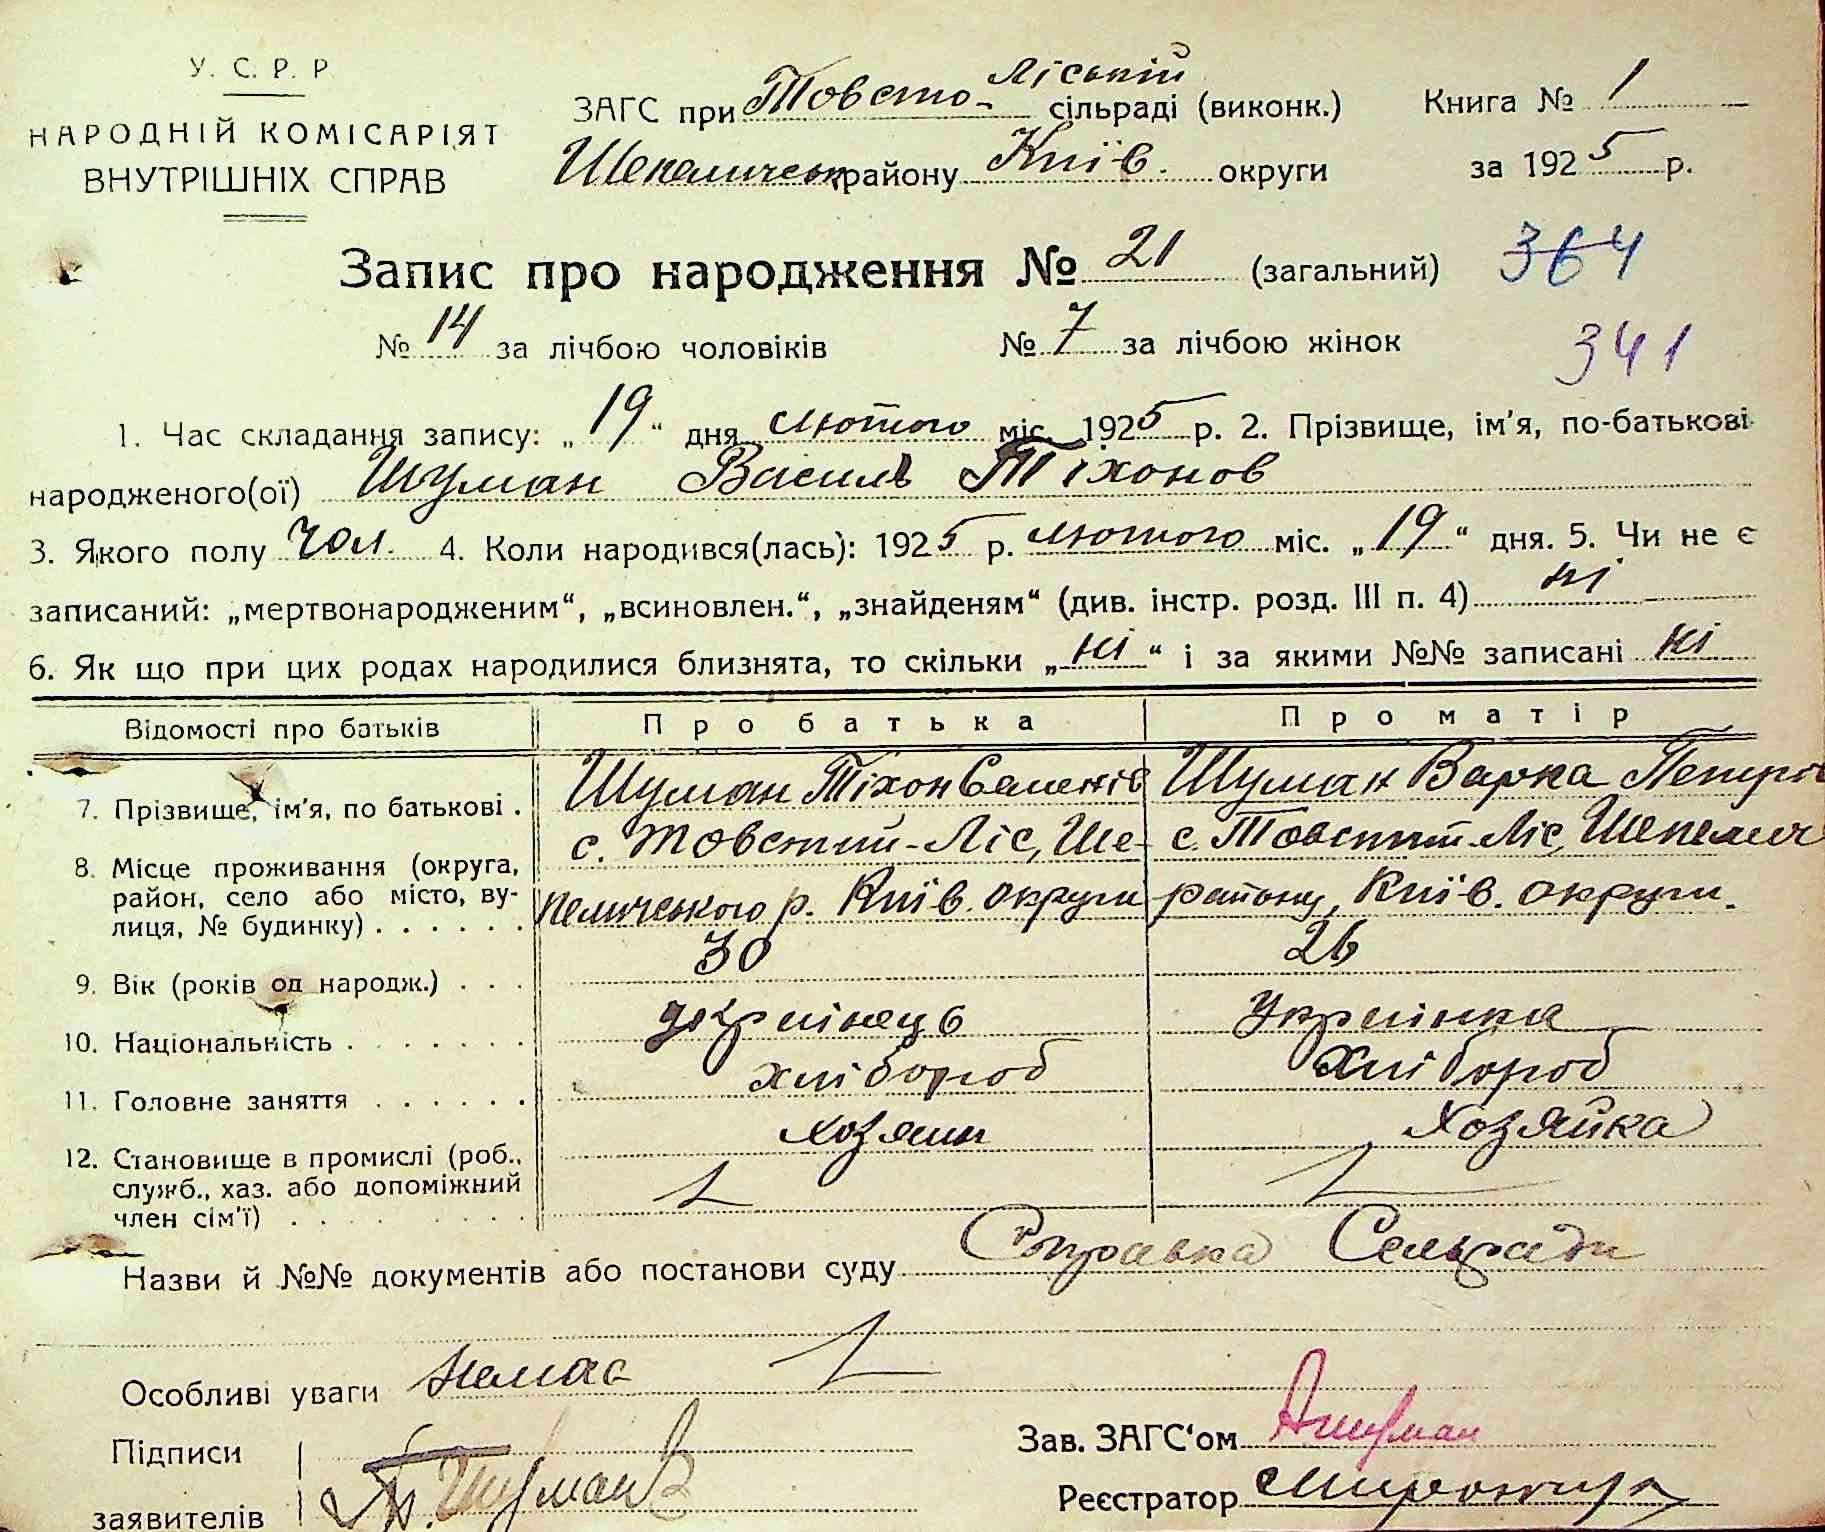 У. С. Р. Р.
НАРОДНІЙ КОМІСАРІЯТ
ВНУТРІШНІХ СПРАВ
ЗАГС при Товсто-Ліській сільраді (виконк.)
Книга № 1
Шепеличськ району Київ. округи
за 1925 р.
Запис про народження № 21 (загальний)
364
№ 14 за лічбою чоловіків № 7 за лічбою жінок
341
1. Час складання запису: „19“ дня лютого міс. 1925 р. 2. Прізвище, ім'я, по-батькові
народженого(ої) Шуман Василь Тіхонов
3. Якого полу чол. 4. Коли народився(лась): 1925 р. лютого міс. „19“ дня. 5. Чи не є
записаний: „мертвонародженим“, „всиновлен.“, „знайденям“ (див. інстр. розд. III п. 4) ні
6. Як що при цих родах народилися близнята, то скільки „ні“ і за якими №№ записані ні
Відомості про батьків Про батька Про матір
7. Прізвище, ім'я, по батькові . Шуман Тіхон Семенів Шуман Варка Петрів
8. Місце проживання (округа, с. Товстий-Ліс, Ше- с. Товстий-Ліс, Шепелич
район, село або місто, ву- пеличського р. Київ. округи району, Київ. округи.
лиця, № будинку) . . . . . .
9. Вік (років од народж.) . . . 30 26
10. Національність . . . . . . . українець українка
11. Головне заняття . . . . . . хлібороб хлібороб
12. Становище в промислі (роб., хозяин хозяйка
служб., хаз. або допоміжний
член сім'ї) . . . . . . . . .
Назви й №№ документів або постанови суду Справка Сельради
Особливі уваги немає
Підписи
заявителів Шуман
Зав. ЗАГС'ом Ашуман
Реєстратор